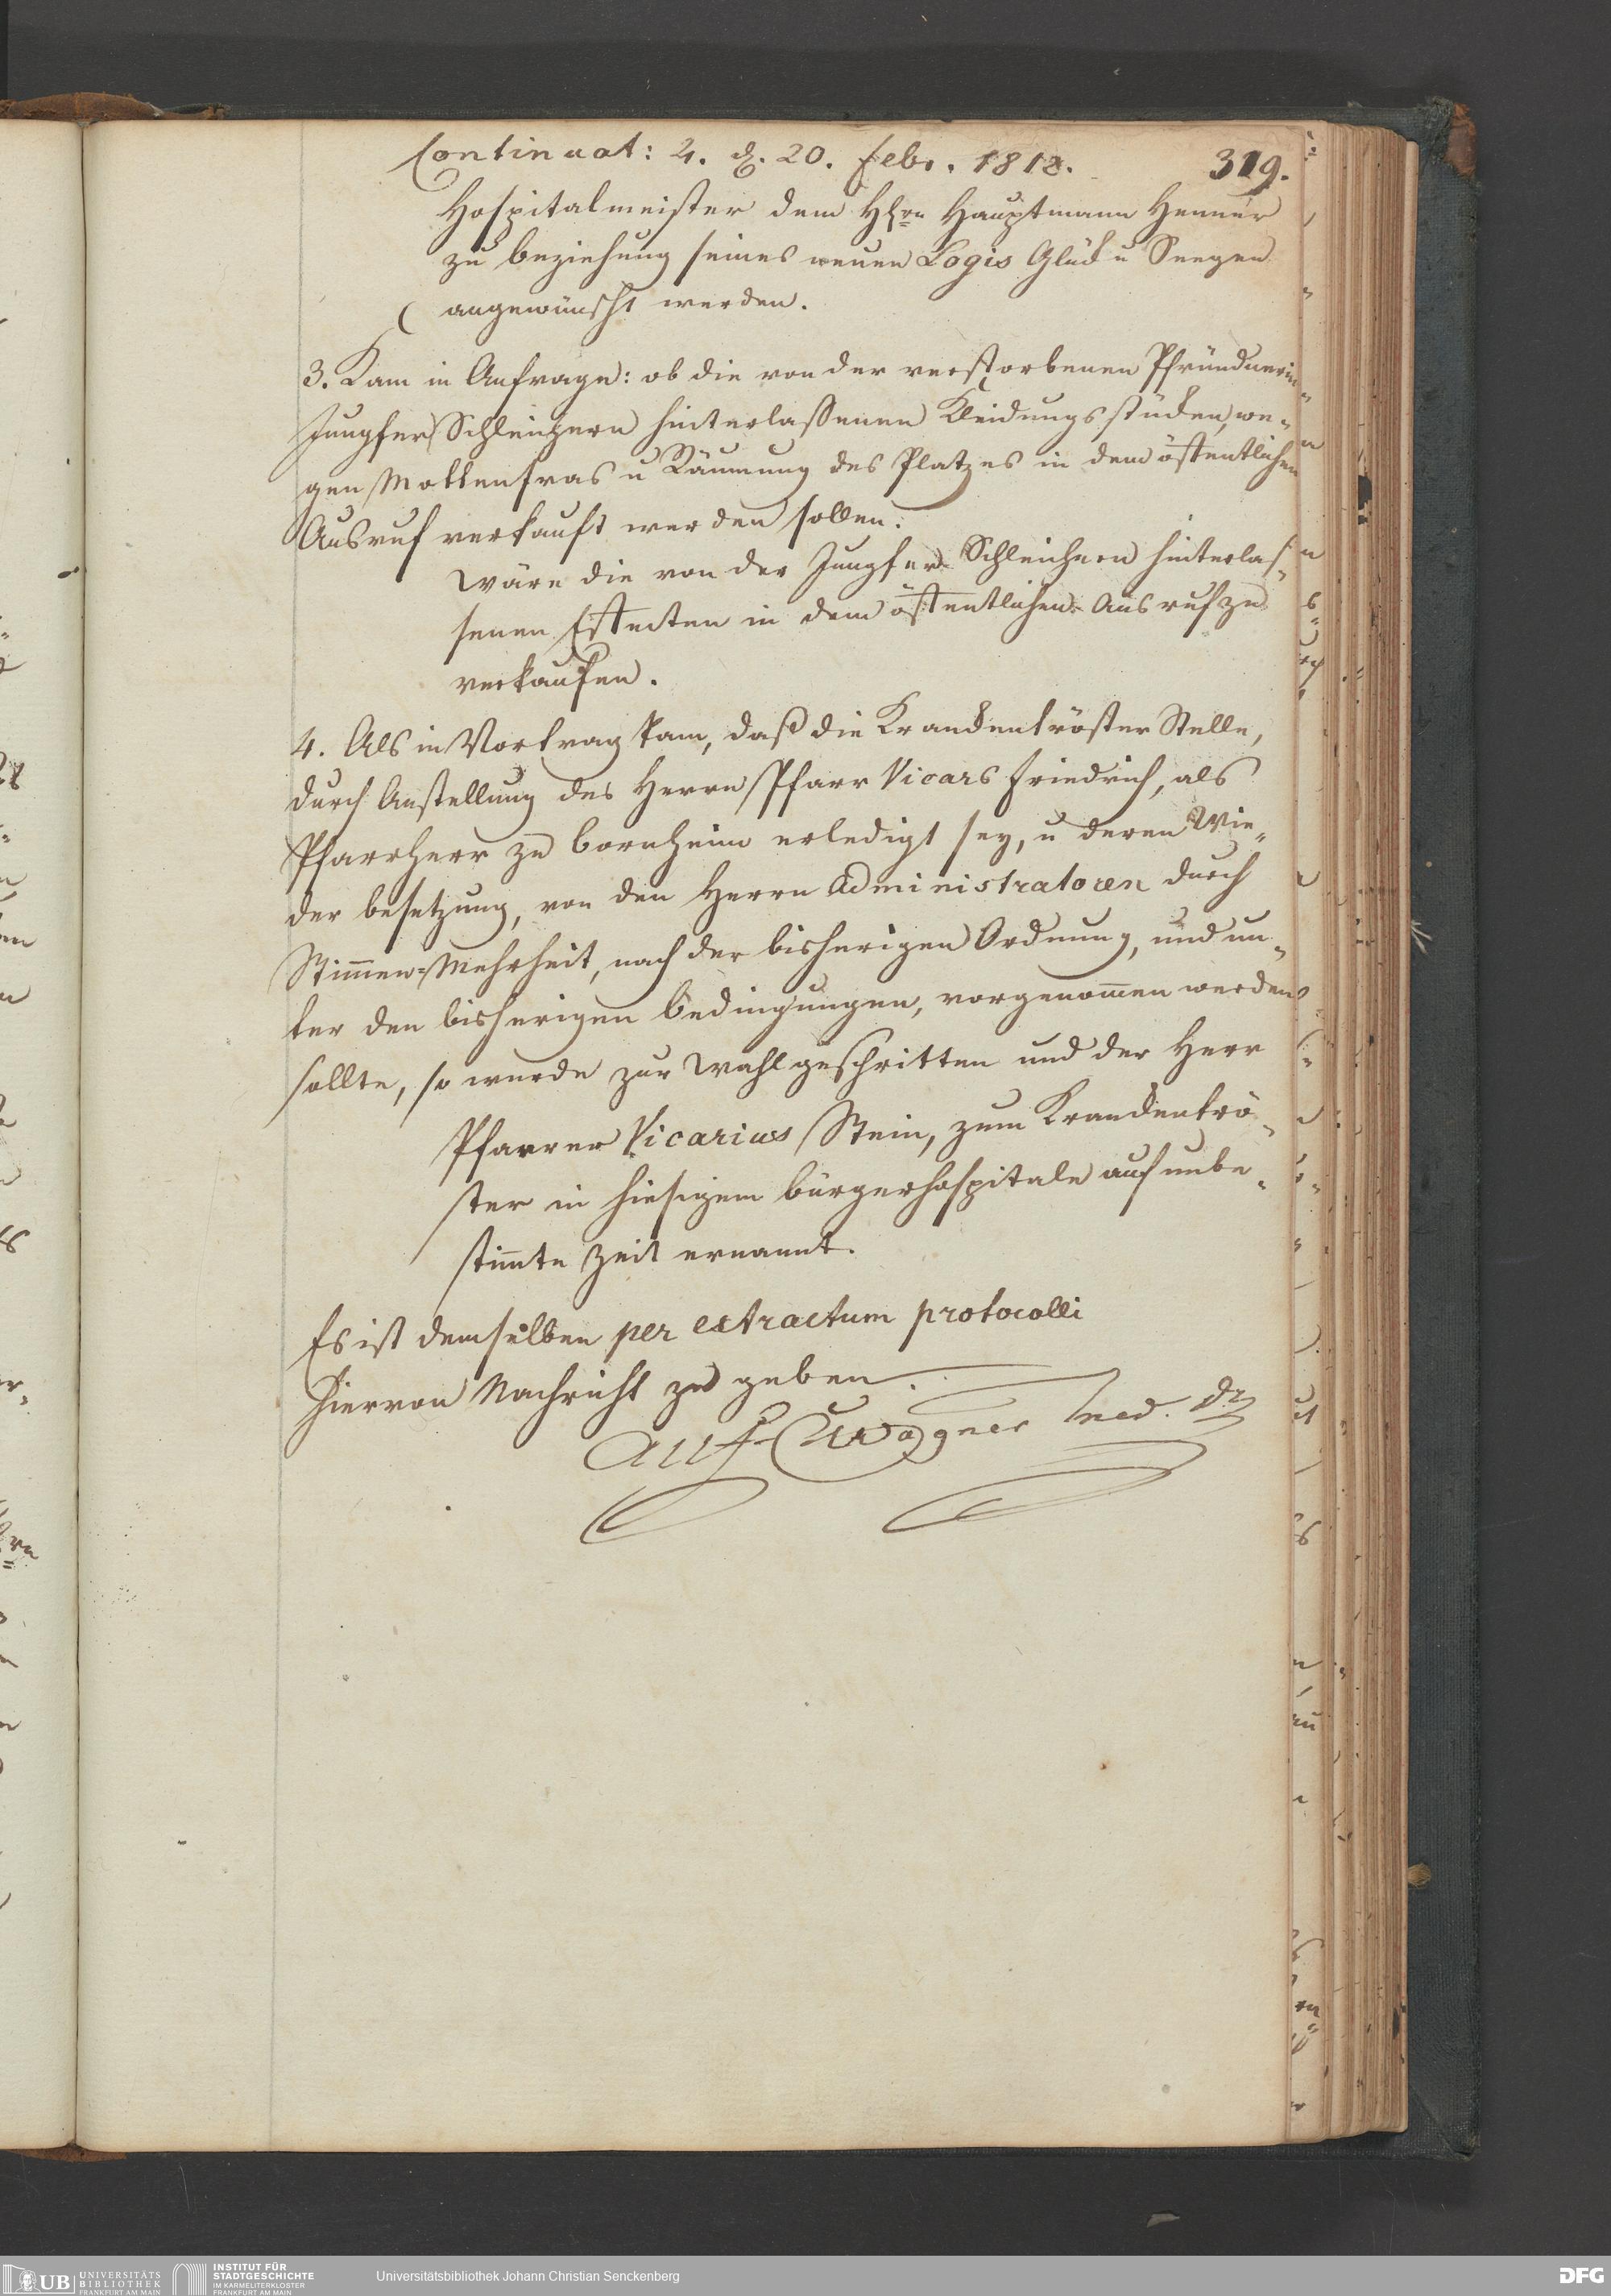 Continuat: 4. d. 20. Febr. 1818. 319.
Hospitalmeister dem Hhrn Hauptmann Henner
zu Beziehung seines neuen Logis Glück u Seegen
angewünscht werden.
3. Kam in Anfrage: ob die von der verstorbenen Pfründnerin
Jungfer Schleichern hinterlassenen Kleidungsstücken, we-
gen Mottenfras u Räumung des Platzes in dem öffentlichen
Ausruf verkauft werden sollen.
Wäre die von der Jungfer Schleichern hinterlas-
senen Effecten in dem öffentlichen Ausruf zu
verkaufen.
4. Als in Vortrag kam, daß die Krankentröster Stelle,
durch Anstellung des Herrn Pfarr Vicars Friedrich, als
Pfarrherr zu Bornheim erledigt sey, u deren Wie-
der besetzung, von den Herrn Administratoren durch
Stimmen-Mehrheit, nach der bisherigen Ordnung, und un-
ter den bisherigen Bedingungen, vorgenommen werden
sollte, so wurde zur Wahl geschritten und der Herr
Pfarrer Vicarius Stein, zum Krankentrö-
ster in hiesigem Bürgerhospitale auf unbe-
stimmte Zeit ernannt.
Es ist demselben per extractum protocolli
hiervon Nachricht zu geben.
Wagner Med. Dr
UB UNIVERSITÄTS
BIBLIOTHEK
FRANKFURT AM MAIN
INSTITUT FÜR
STADTGESCHICHTE
IM KARMELITERKLOSTER
FRANKFURT AM MAIN
Universitätsbibliothek Johann Christian Senckenberg
DFG